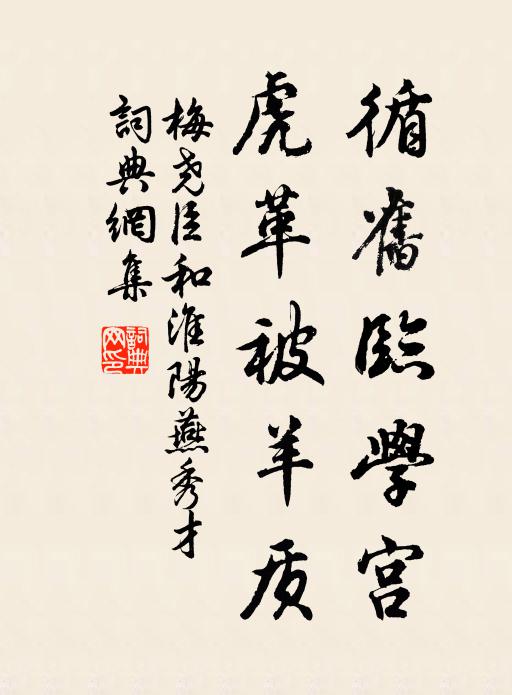 循舊臨學宮
虎革被羊质
梅尧臣和淮陽燕秀才
詞典網集
詞典网印